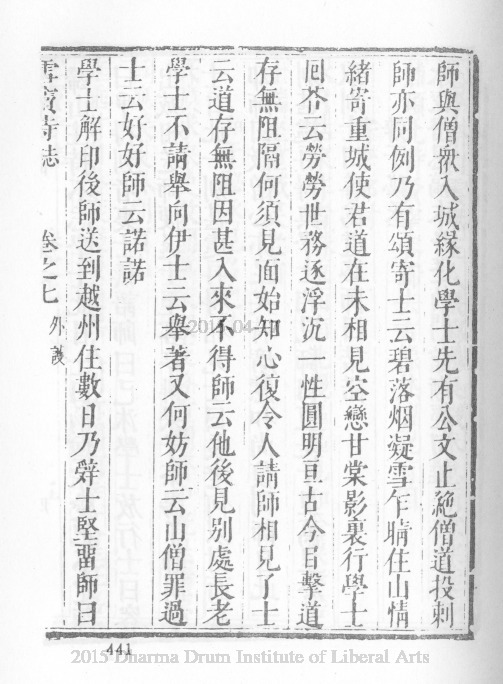 師與僧衆入城緣化學士先有公文止絶僧道投刺
師亦同例乃有頌寄士云碧落烟凝雪乍晴住山情
緒寄重城使君道在未相見空戀甘棠影裏行學士
囘荅云勞勞世務逐浮沉一性圓明亘古今目擊道
存無阻隔何須見面始知心復令人請師相見了士
云道存無阻因甚入來不得師云他後見别處長老
學士不請舉向伊士云舉著又何妨師云山僧罪過
士云好好師云諾諾
學士解印後師送到越州住數日乃辤士堅畱師曰
雪竇寺誌 卷之七 外護
441
2015 Dharma Drum Institute of Liberal Arts